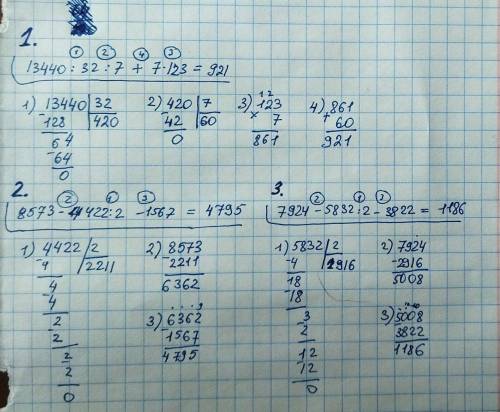 1.
① ② ④ ③
13440 : 32 : 7 + 7·123 = 921
1) 13440 | 32
-128 420
64
-64
0
2) 420 | 7
-42 60
0
3) 12
123
× 7
861
4) 861
+ 60
921
2.
② ① ③
8573 - 4422 : 2 - 1567 = 4795
1) 4422 | 2
-4 2211
4
-4
2
-2
2
-2
0
2) 8573
-2211
6362
3) 6362
-1567
4795
3.
② ① ③
7924 - 5832 : 2 - 3822 = 1186
1) 5832 | 2
-4 2916
18
-18
3
-2
12
-12
0
2) 7924
-2916
5008
3) 5008
-3822
1186